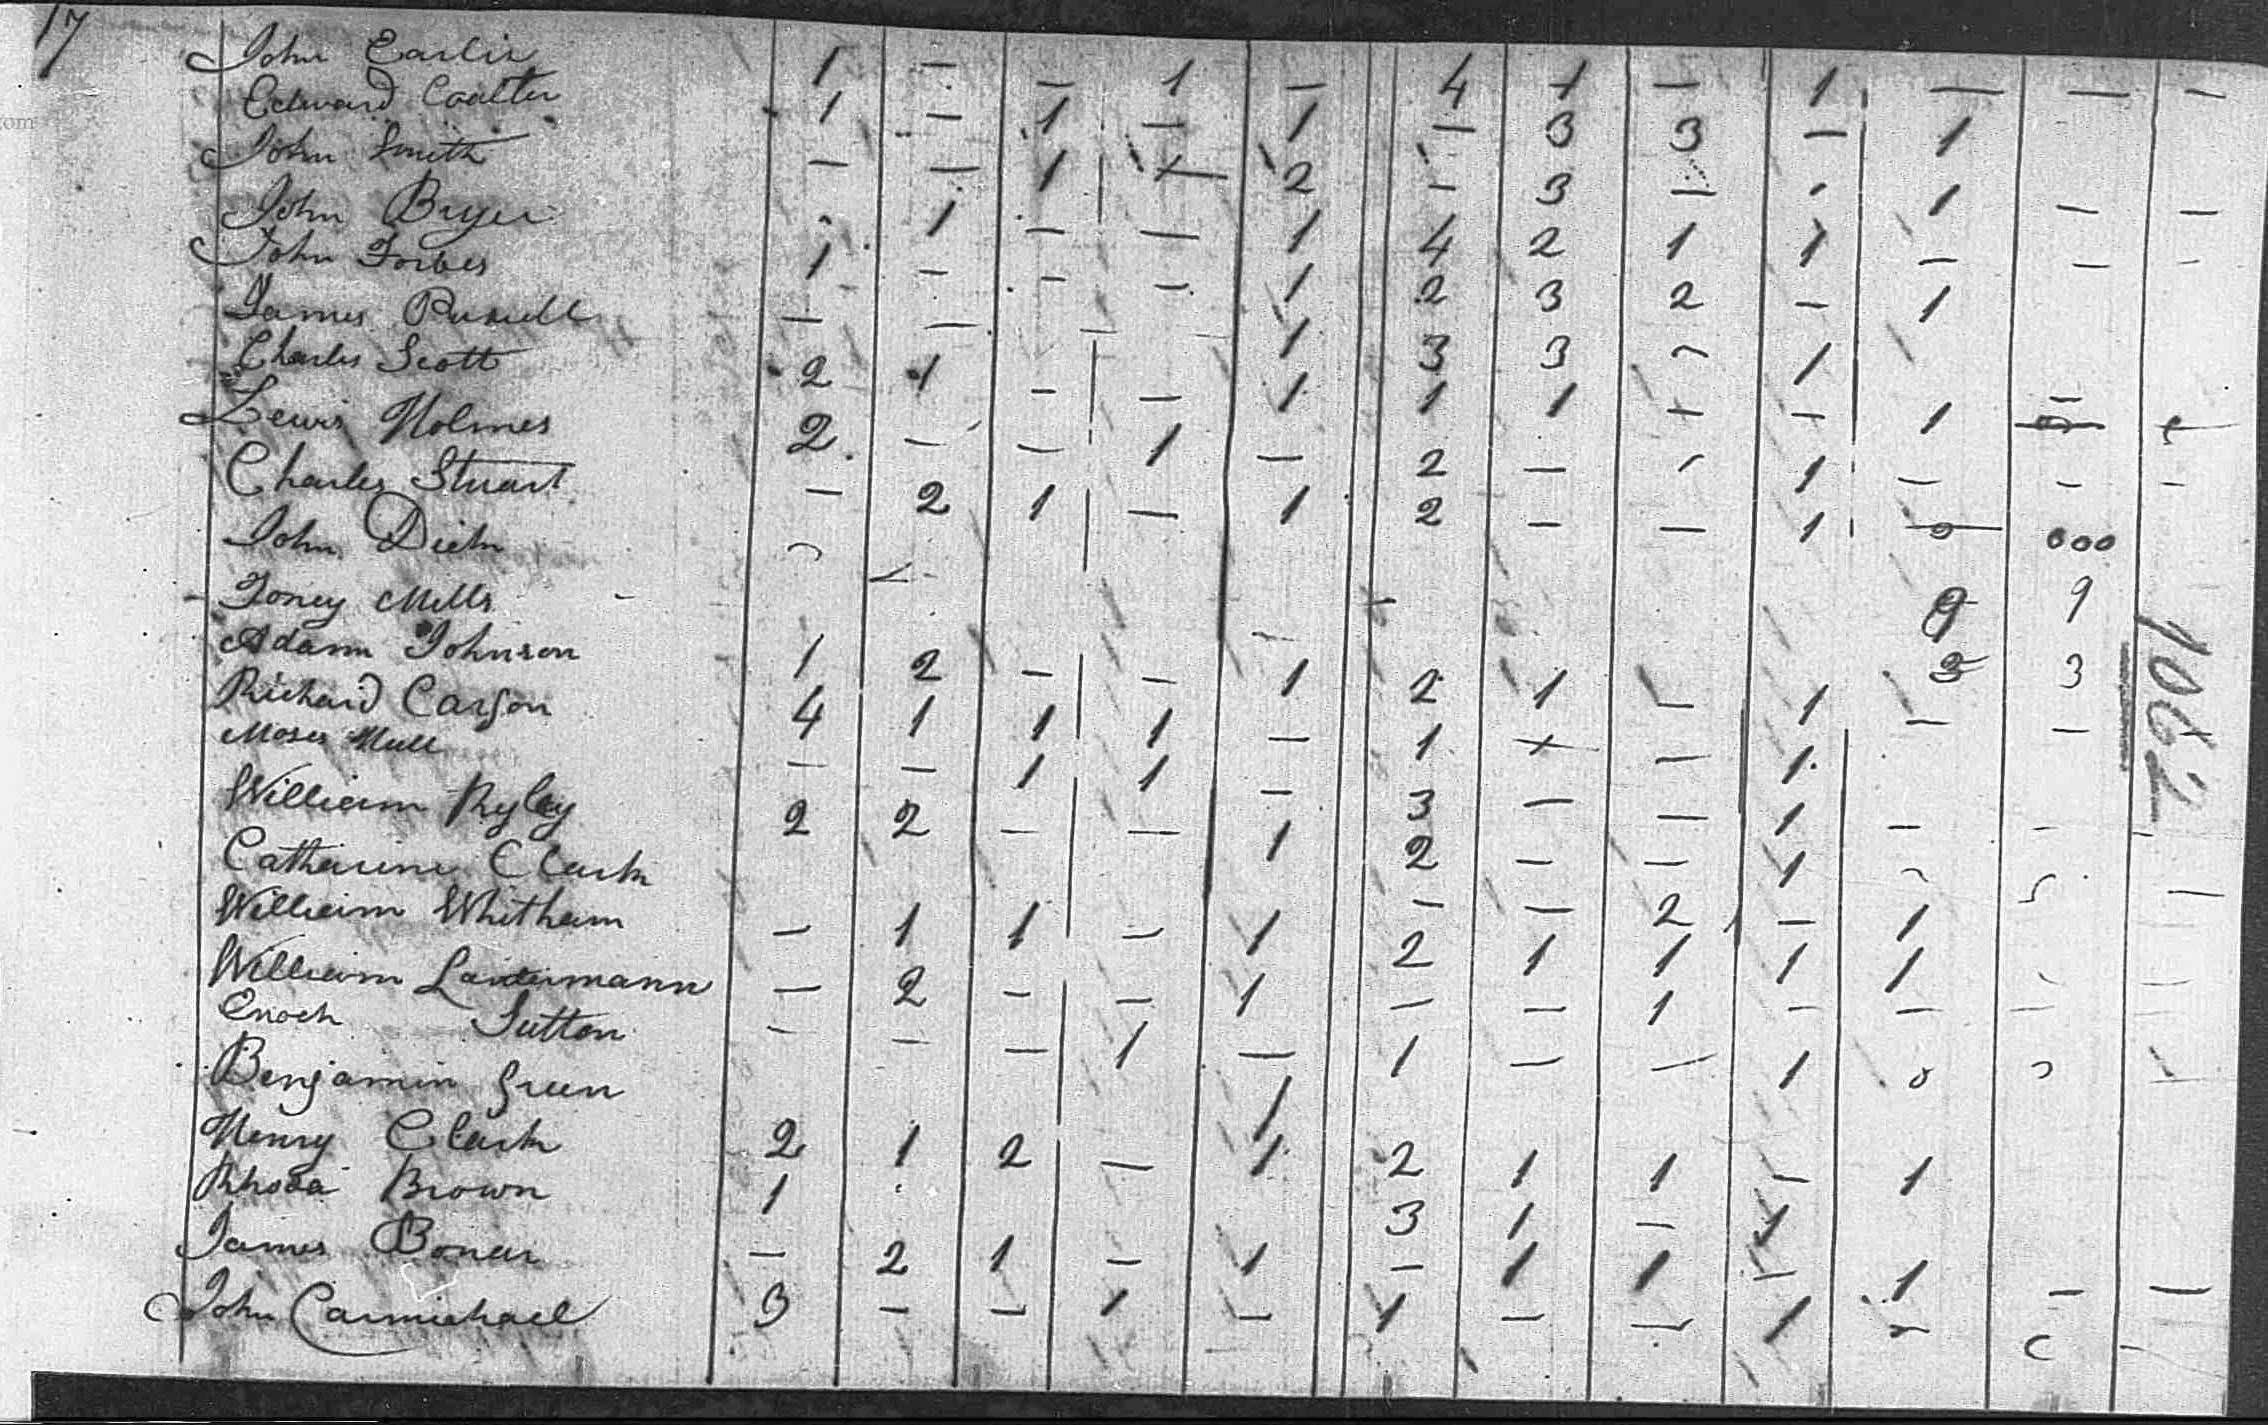 17
John Earlie 1 - - 1 - 4 1 - 1 - - -
Edward Coalter 1 - 1 - 1 - 3 3 - 1
John Smith - - 1 - 2 - 3 - - 1 - -
John Bryer - 1 - - 1 4 2 1 1 - - -
John Forbes 1 - - - 1 2 3 2 - 1
James Russell - - - 1 3 3 - 1
Charles Scott 2 1 - - 1 1 1 - - 1 -
Lewis Holmes 2 - - 1 - 2 - - 1 - - -
Charles Stuart - 2 1 - 1 2 - - 1 - 000
John Diek
Toney Mills 9 9
Adam Johnson 1 2 - - 1 2 1 - 1 3 3
Richard Carson 4 1 1 1 - 1 - - 1 - -
Moses Hull - - 1 1 - 3 - - 1
William Ryley 2 2 - - 1 2 - - 1 - - -
Catharine Clark - - 2 - 1
William Whitham - 1 1 - 1 2 1 1 1 1
William Laudermann - 2 - - 1 - - 1 - - -
Enoch Sutton - - - 1 - 1 - - 1
Benjamin Green 1
Henry Clark 2 1 2 - 1 2 1 1 - 1
Rhoda Brown 1 3 1 - 1
James Bonar - 2 1 - 1 - 1 1 - 1 - -
John Carmichael 3 - - 1 - 1 - - 1 -
1062